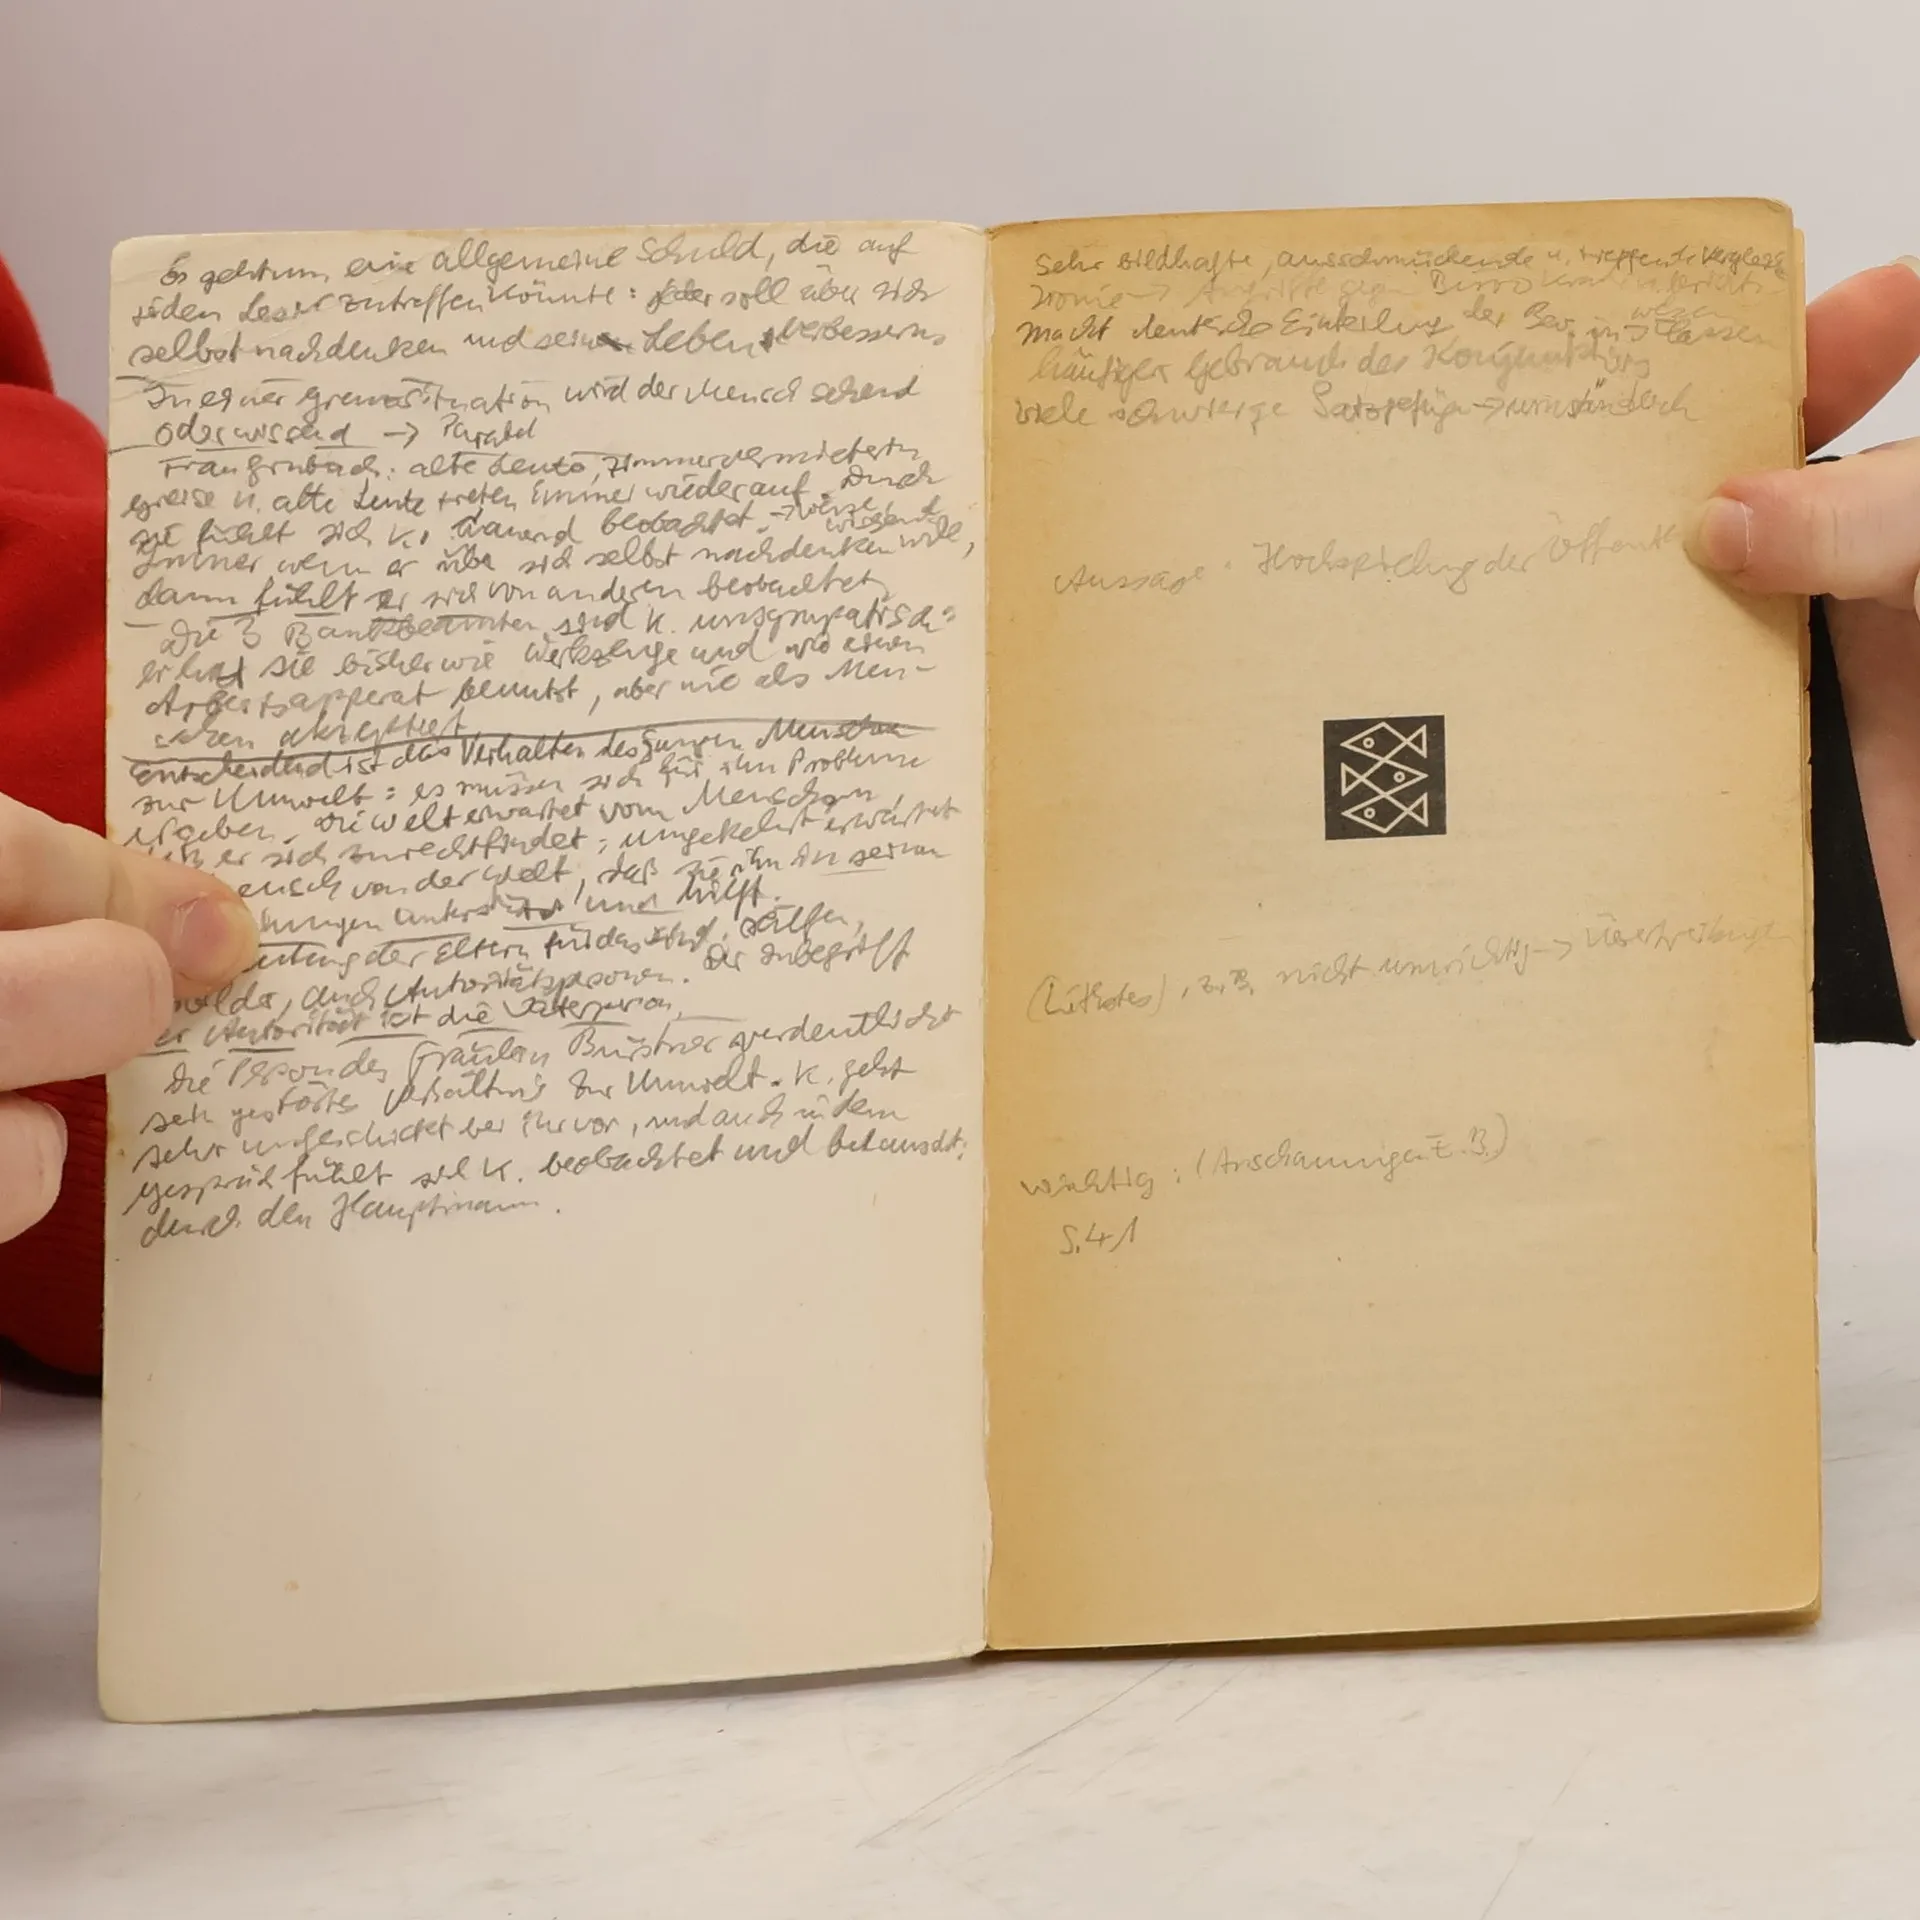 Es geht um eine allgemeine Schuld, die auf
jeden Leser zutreffen könnte: jeder soll über sich
selbst nachdenken und sein Leben verbessern
In einer Grenzsituation wird der Mensch sehend
oder wissend → Parabel
Frau Grubach: alte Leute, Zimmervermieterin
Greise u. alte Leute treten immer wieder auf. Durch
sie fühlt sich K. dauernd beobachtet. → weise
wissende
Immer wenn er über sich selbst nachdenken will,
dann fühlt er sich von anderen beobachtet
Die 3 Bankbeamten sind K. unsympatisch:
er hat sie bisher wie Werkzeuge und wie einen
Arbeitsapperat benutzt, aber nie als Men-
schen akzeptiert
Entscheidend ist das Verhalten des jungen Menschen
zur Umwelt: es müssen sich für ihn Probleme
ergeben. Die Welt erwartet vom Menschen,
er sich zurechtfindet; umgekehrt erwartet
ensch von der Welt, daß sie ihn in seinen
hungen unterstützt und hilft.
eutung der Eltern für das Kind: Helfer,
bilder, auch Autoritätspersonen. Der Inbegriff
er Autorität ist die Vaterperson.
Die Person des Fräulein Bürstner verdeutlicht
sein gestörtes Verhältnis zur Umwelt. K. geht
sehr ungeschickt bei ihr vor, und auch in dem
Gespräch fühlt sich K. beobachtet und belauscht:
durch den Hauptmann.
Sehr bildhafte, ausschmückende u. treffende Vergleiche
Ironie → Angriffe gegen Bürokratie u. Gerichts-
wesen
macht deutliche Einteilung der Bev. in → Klassen
häufiger Gebrauch des Konjunktivs
viele schwierige Satzgefüge → umständlich
Aussage: Hochspielung der Öffentl
(Litotes), z.B. nicht unwichtig → Übertreibungen
wichtig: (Anschauungen z.B.)
S. 41